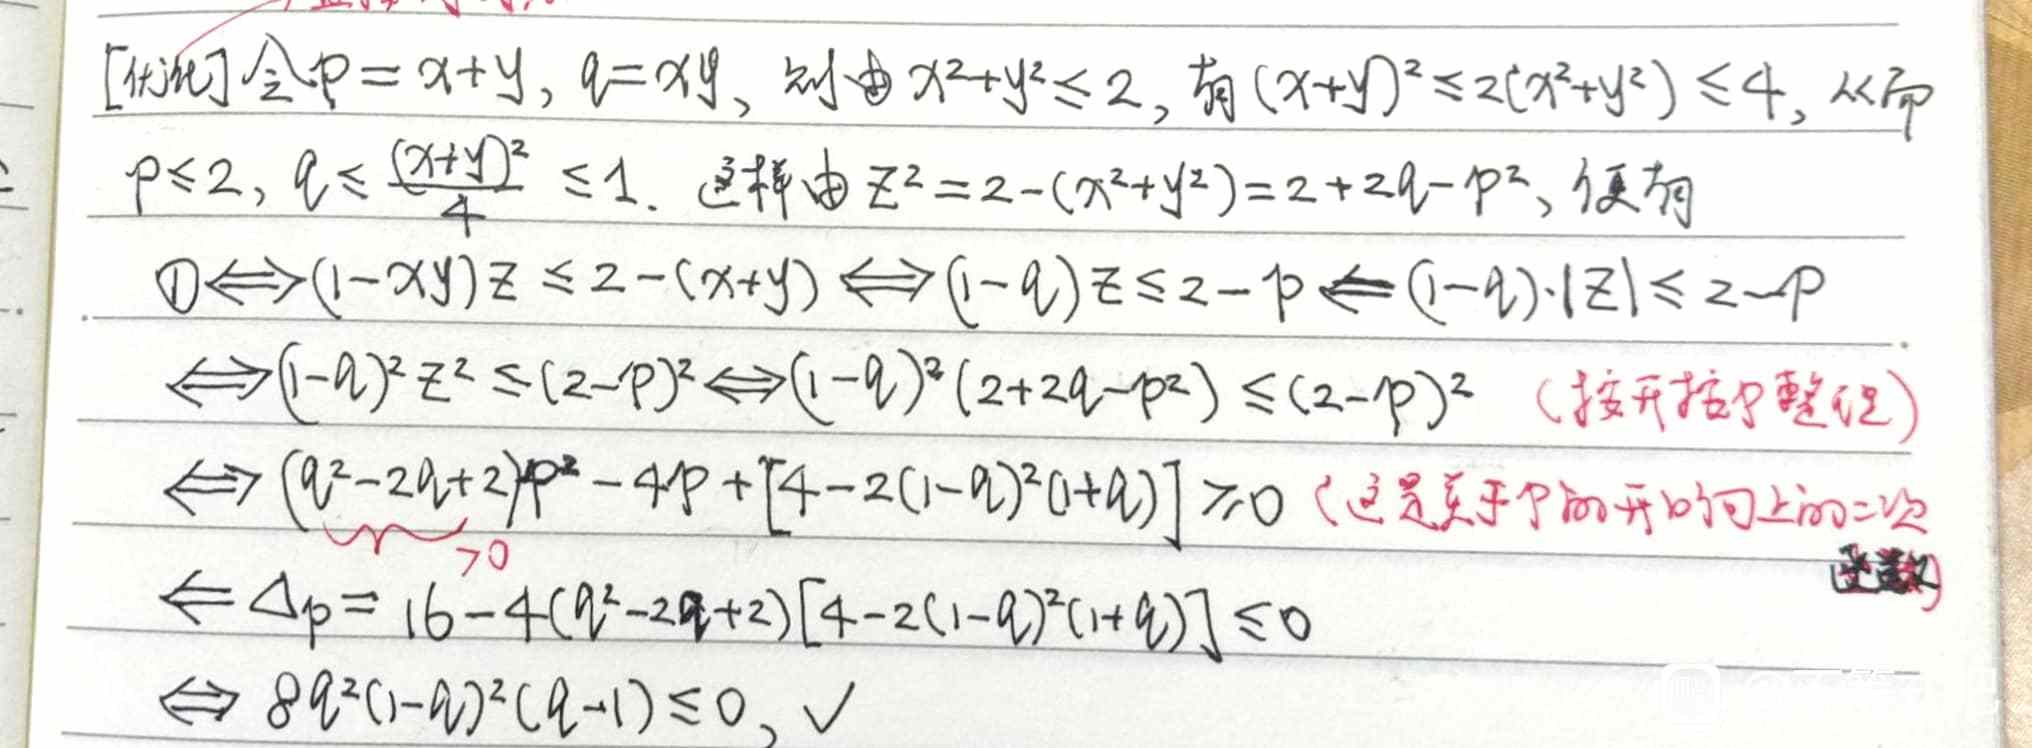 [优化]令p=x+y, q=xy, 则由x²+y²≤2, 有(x+y)²≤2(x²+y²)≤4, 从而
p≤2, q≤(x+y)²/4≤1. 这样由z²=2-(x²+y²)=2+2q-p², 便有
①⟺(1-xy)z≤2-(x+y)⟺(1-q)z≤2-p⟸(1-q)·|z|≤2-p
⟺(1-q)²z²≤(2-p)²⟺(1-q)²(2+2q-p²)≤(2-p)² (按开按p整理)
⟺(q²-2q+2)p²-4p+[4-2(1-q)²(1+q)]≥0 (这是关于p的开口向上的二次
>0
⟸Δp=16-4(q²-2q+2)[4-2(1-q)²(1+q)]≤0
⟺8q²(1-q)²(q-1)≤0, ✓